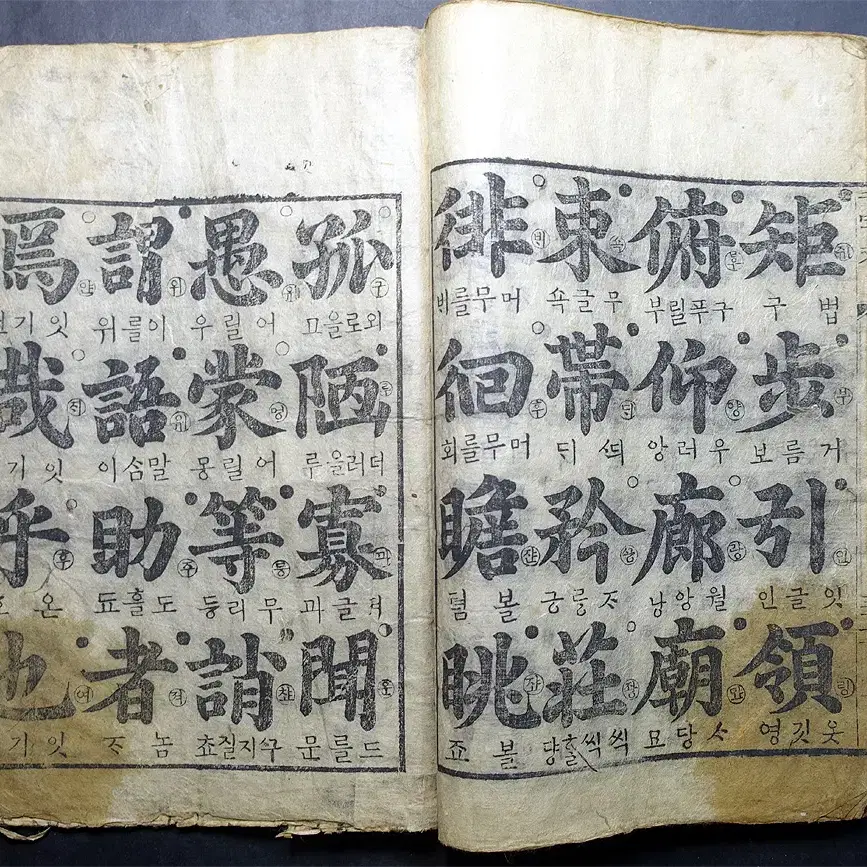 矩 법 구 步 거름 보 引 잇글 인 領 옷깃 영
俯 구푸릴 부 仰 우러 앙 廊 월앙 낭 廟 ᄉᆞ당 묘
束 무글 속 帶 ᄯᅴ ᄃᆡ 矜 긍 莊 씩씩홀
徘 머무를 ᄇᆡ 徊 머무를 회 瞻 볼 쳠 眺 볼 죠
孤 외로을 고 陋 더러을 루 寡 져글 과 聞 드를 문
愚 어릴 우 蒙 어릴 몽 等 무리 등 誚 구지질 쵸
謂 이를 위 語 말 助 도 者 놈
焉 잇기 哉 잇기 乎 온 也 잇기